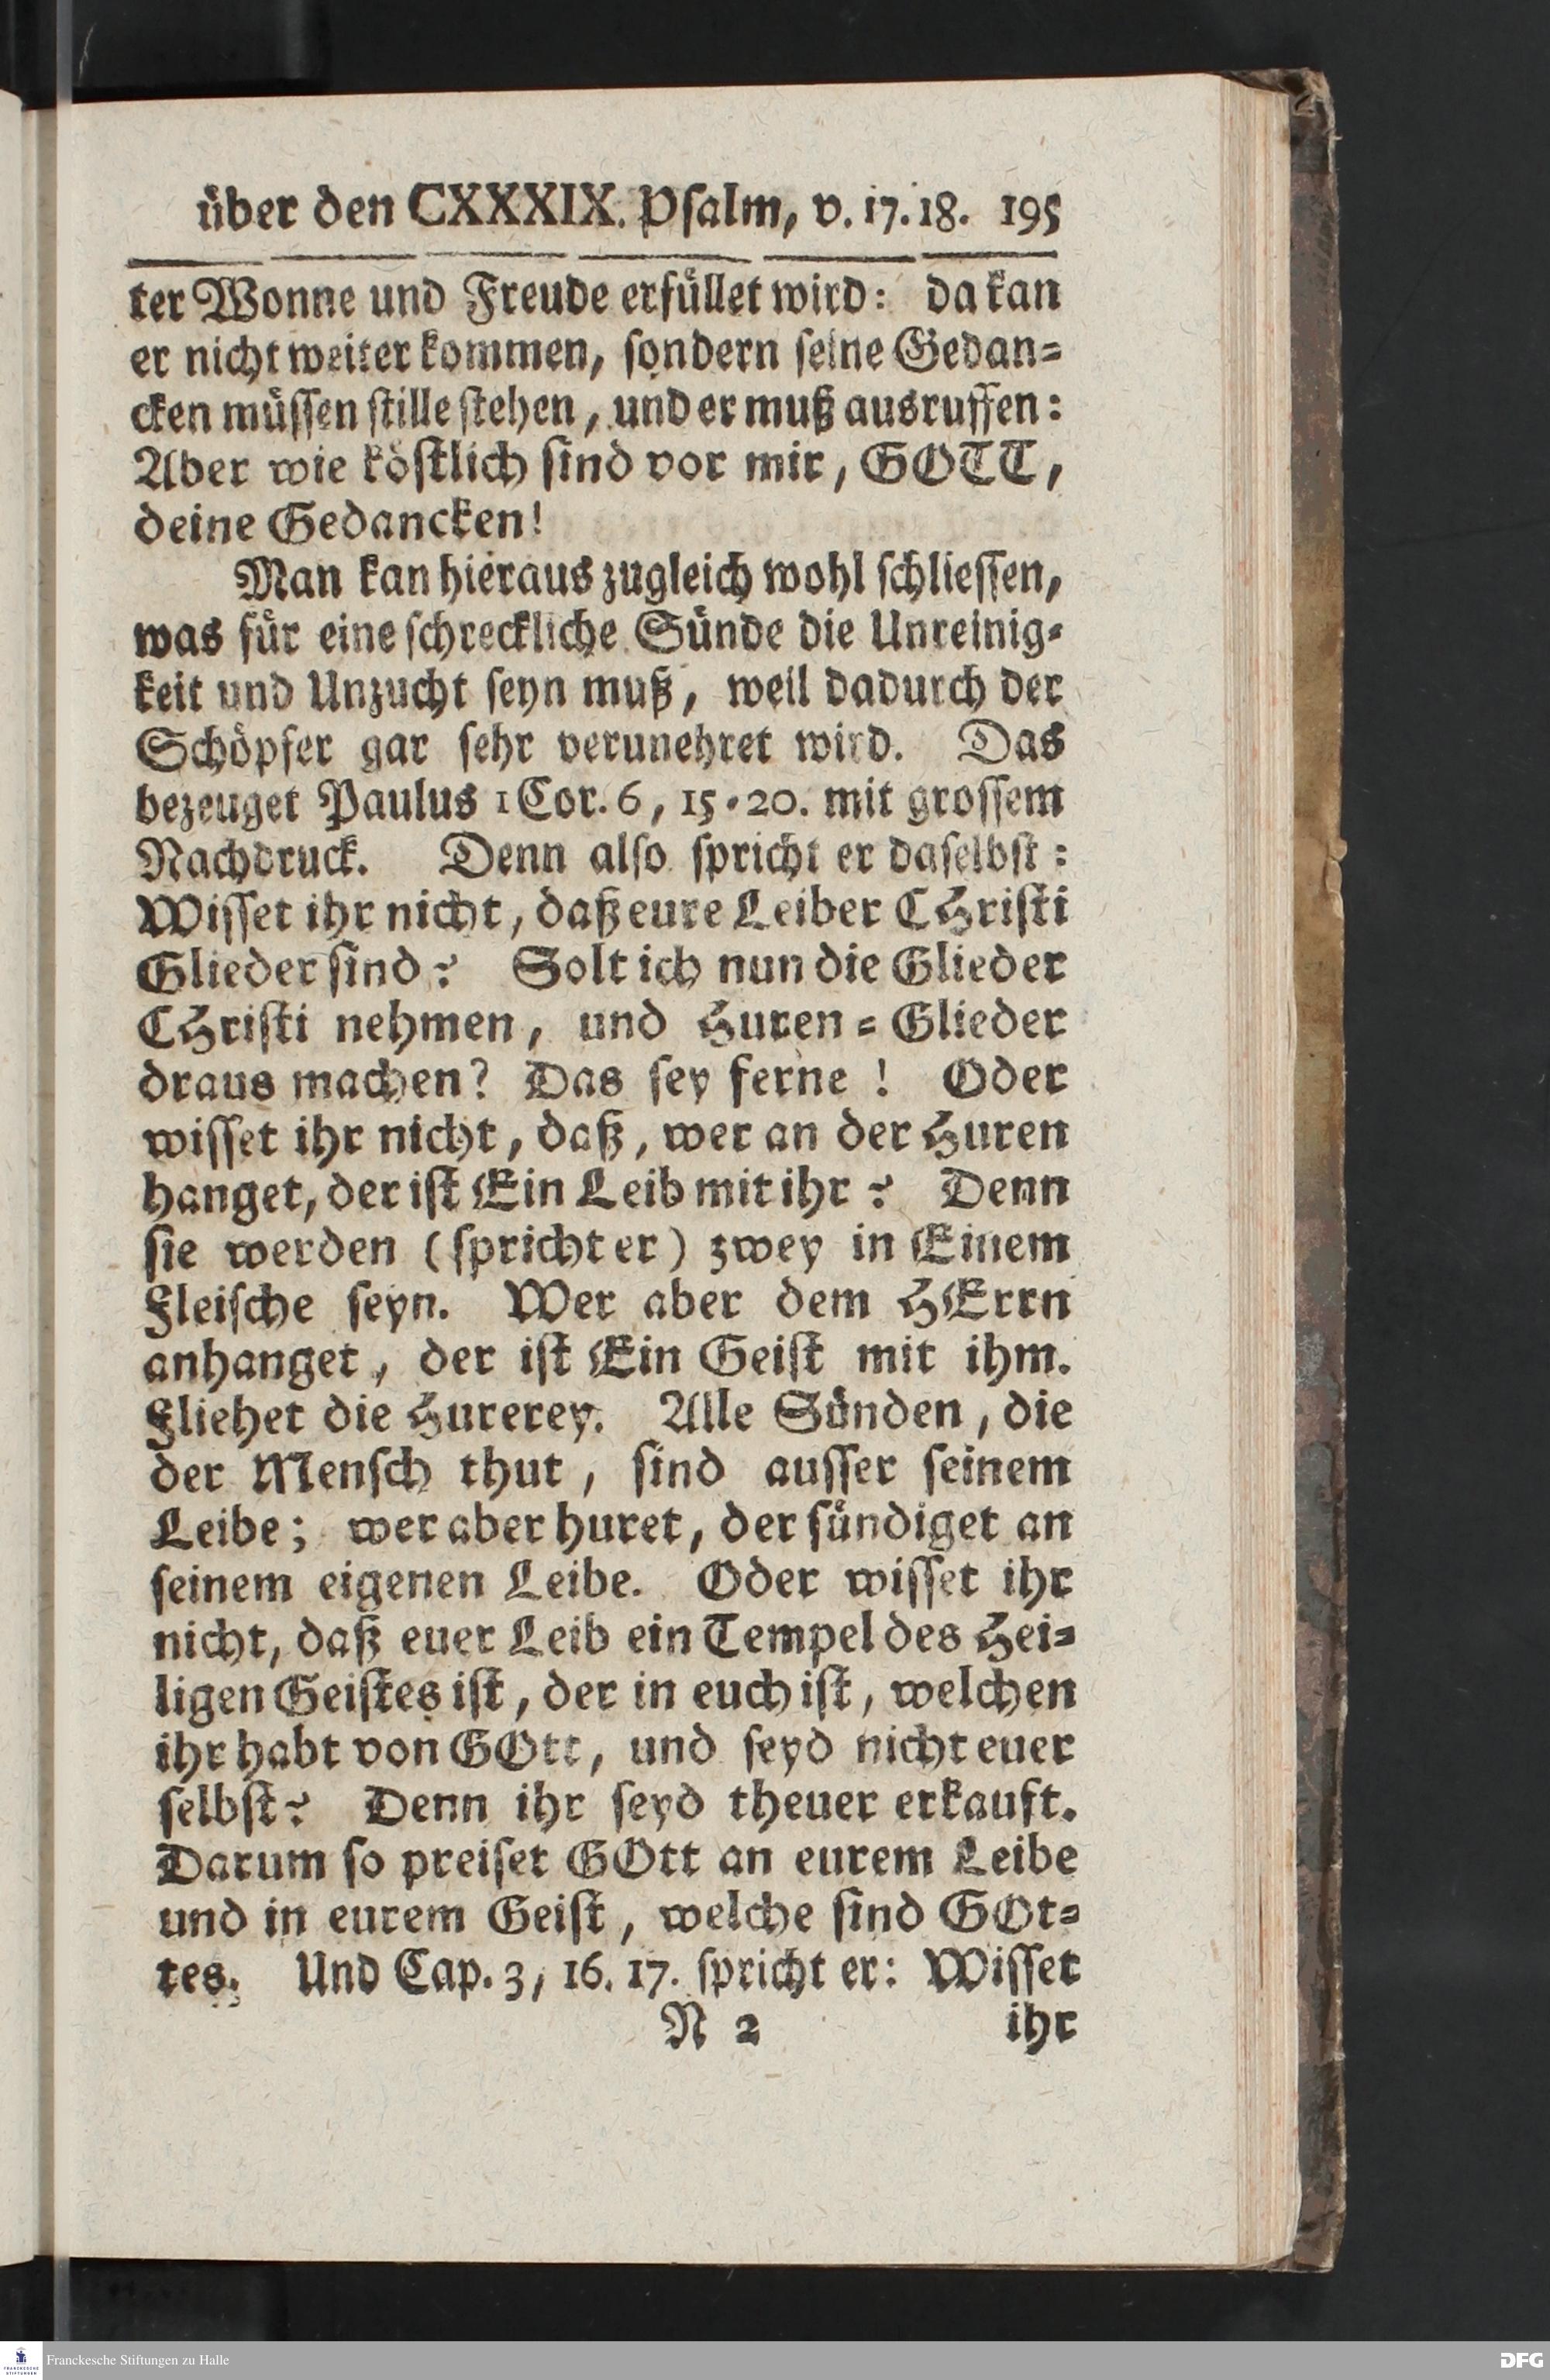 über den CXXXIX. Psalm, v. 17. 18. 195
ter Wonne und Freude erfüllet wird: da kan
er nicht weiter kommen, sondern seine Gedan-
cken müssen stille stehen, und er muß ausruffen:
Aber wie köstlich sind vor mir, GOTT,
deine Gedancken!
Man kan hieraus zugleich wohl schliessen,
was für eine schreckliche Sünde die Unreinig-
keit und Unzucht seyn muß, weil dadurch der
Schöpfer gar sehr verunehret wird. Das
bezeuget Paulus 1 Cor. 6, 15-20. mit grossem
Nachdruck. Denn also spricht er daselbst:
Wisset ihr nicht, daß eure Leiber CHristi
Glieder sind? Solt ich nun die Glieder
CHristi nehmen, und Huren-Glieder
draus machen? Das sey ferne! Oder
wisset ihr nicht, daß, wer an der Huren
hanget, der ist Ein Leib mit ihr? Denn
sie werden (spricht er) zwey in Einem
Fleische seyn. Wer aber dem HErrn
anhanget, der ist Ein Geist mit ihm.
Fliehet die Hurerey. Alle Sünden, die
der Mensch thut, sind ausser seinem
Leibe; wer aber huret, der sündiget an
seinem eigenen Leibe. Oder wisset ihr
nicht, daß euer Leib ein Tempel des Hei-
ligen Geistes ist, der in euch ist, welchen
ihr habt von GOtt, und seyd nicht euer
selbst? Denn ihr seyd theuer erkauft.
Darum so preiset GOtt an eurem Leibe
und in eurem Geist, welche sind GOt-
tes. Und Cap. 3, 16. 17. spricht er: Wisset
N 2 ihr
FRANCKESCHE STIFTUNGEN
Franckesche Stiftungen zu Halle
DFG